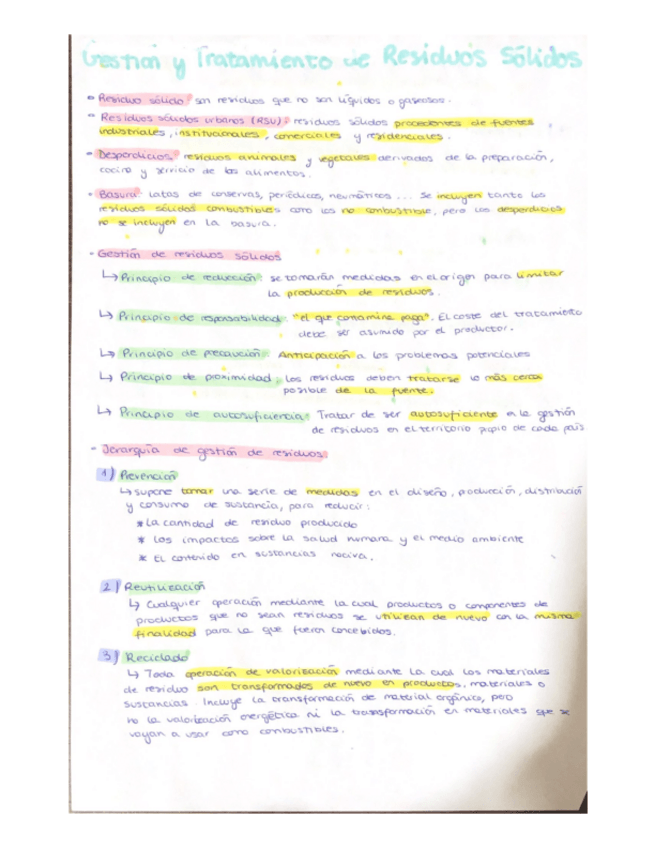 Gestión y Tratamiento de Residuos Sólidos
- Residuo sólido: son residuos que no son líquidos o gaseosos.
- Residuos sólidos urbanos (RSU): residuos sólidos procedentes de fuentes
industriales, institucionales, comerciales y residenciales.
- Desperdicios: residuos animales y vegetales derivados de la preparación,
cocina y servicio de los alimentos.
- Basura: latas de conservas, periódicos, neumáticos... Se incluyen tanto los
residuos sólidos combustibles como los no combustible, pero los desperdicios
no se incluyen en la basura.
- Gestión de residuos sólidos
↳ Principio de reducción: se tomarán medidas en el origen para limitar
la producción de residuos.
↳ Principio de responsabilidad: "el que contamina paga". El coste del tratamiento
debe ser asumido por el productor.
↳ Principio de precaución: Anticipación a los problemas potenciales
↳ Principio de proximidad: los residuos deben tratarse lo más cerca
posible de la fuente.
↳ Principio de autosuficiencia: Tratar de ser autosuficiente en la gestión
de residuos en el territorio propio de cada país.
- Jerarquía de gestión de residuos:
1) Prevención
↳ supone tomar una serie de medidas en el diseño, producción, distribución
y consumo de sustancia, para reducir:
* La cantidad de residuo producido
* Los impactos sobre la salud humana y el medio ambiente
* El contenido en sustancias nociva.
2) Reutilización
↳ Cualquier operación mediante la cual productos o componentes de
productos que no sean residuos se utilizan de nuevo con la misma
finalidad para la que fueron concebidos.
3) Reciclado
↳ Toda operación de valorización mediante la cual los materiales
de residuo son transformados de nuevo en productos, materiales o
sustancias. Incluye la transformación de material orgánico, pero
no la valorización energética ni la transformación en materiales que se
vayan a usar como combustibles.